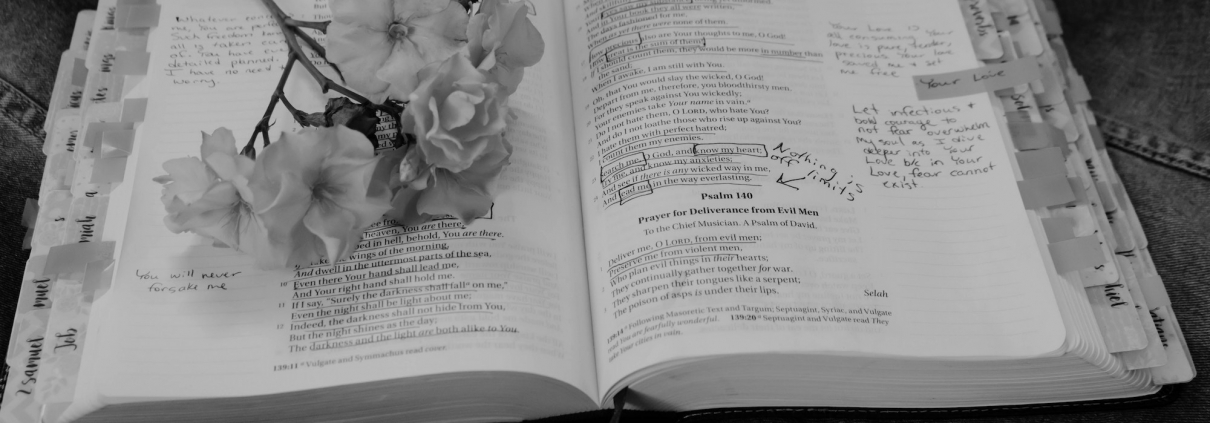 me, You are
Such freedom
all is taken
detailed planned.
I have no need
worry.
You will never
forsake me
heaven, You are there;
in hell, behold, You are there.
wings of the morning,
And dwell in the uttermost parts of the sea,
10 Even there Your hand shall lead me,
And Your right hand shall hold me.
11 If I say, "Surely the darkness shall fall on me,"
Even the night shall be light about me;
12 Indeed, the darkness shall not hide from You,
But the night shines as the day;
The darkness and the light are both alike to You.
139:11 Vulgate and Symmachus read cover
2 Samuel
Job
Your book they all were written,
The days fashioned for me,
When as yet there were none of them.
precious also are Your thoughts to me, O God!
great is the sum of them!
If I should count them, they would be more in number than
the sand;
When I awake, I am still with You.
Oh, that You would slay the wicked, O God!
Depart from me, therefore, you bloodthirsty men.
For they speak against You wickedly;
Your enemies take Your name in vain.
Do I not hate them, O LORD, who hate You?
And do I not loathe those who rise up against You?
I hate them with perfect hatred;
I count them my enemies.
Search me, O God, and know my heart;
Try me, and know my anxieties;
And see if there is any wicked way in me,
And lead me in the way everlasting.
Nothing is
off limits
Psalm 140
Prayer for Deliverance from Evil Men
To the Chief Musician. A Psalm of David.
Deliver me, O LORD, from evil men;
Preserve me from violent men,
Who plan evil things in their hearts;
They continually gather together for war.
They sharpen their tongues like a serpent;
The poison of asps is under their lips.
Selah
139:14 Following Masoretic Text and Targum; Septuagint, Syriac, and Vulgate
read You are fearfully wonderful. 139:20 Septuagint and Vulgate read They
take Your cities in vain.
Your love is
all consuming. Your
love is pure, tender,
precious. Your love
saved me + set
me free
Your Love
Let infectious +
bold courage to
not fear overwhelm
my soul as I dive
deeper into Your
Love b/c in Your
Love, fear cannot
exist